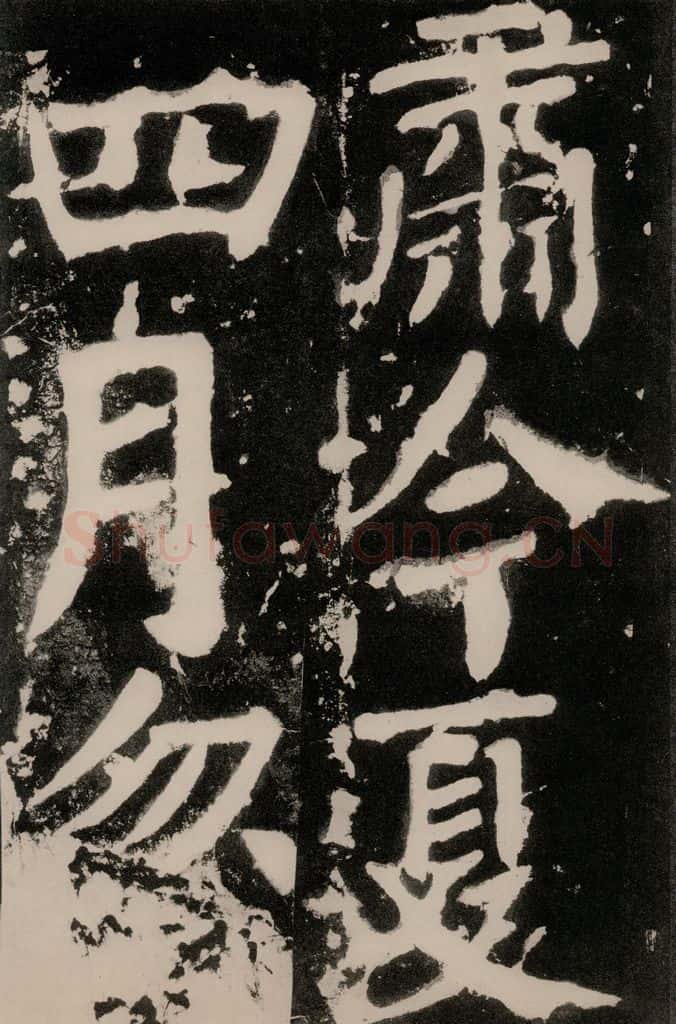 肅今夏
四月忽
Shufawang.CN